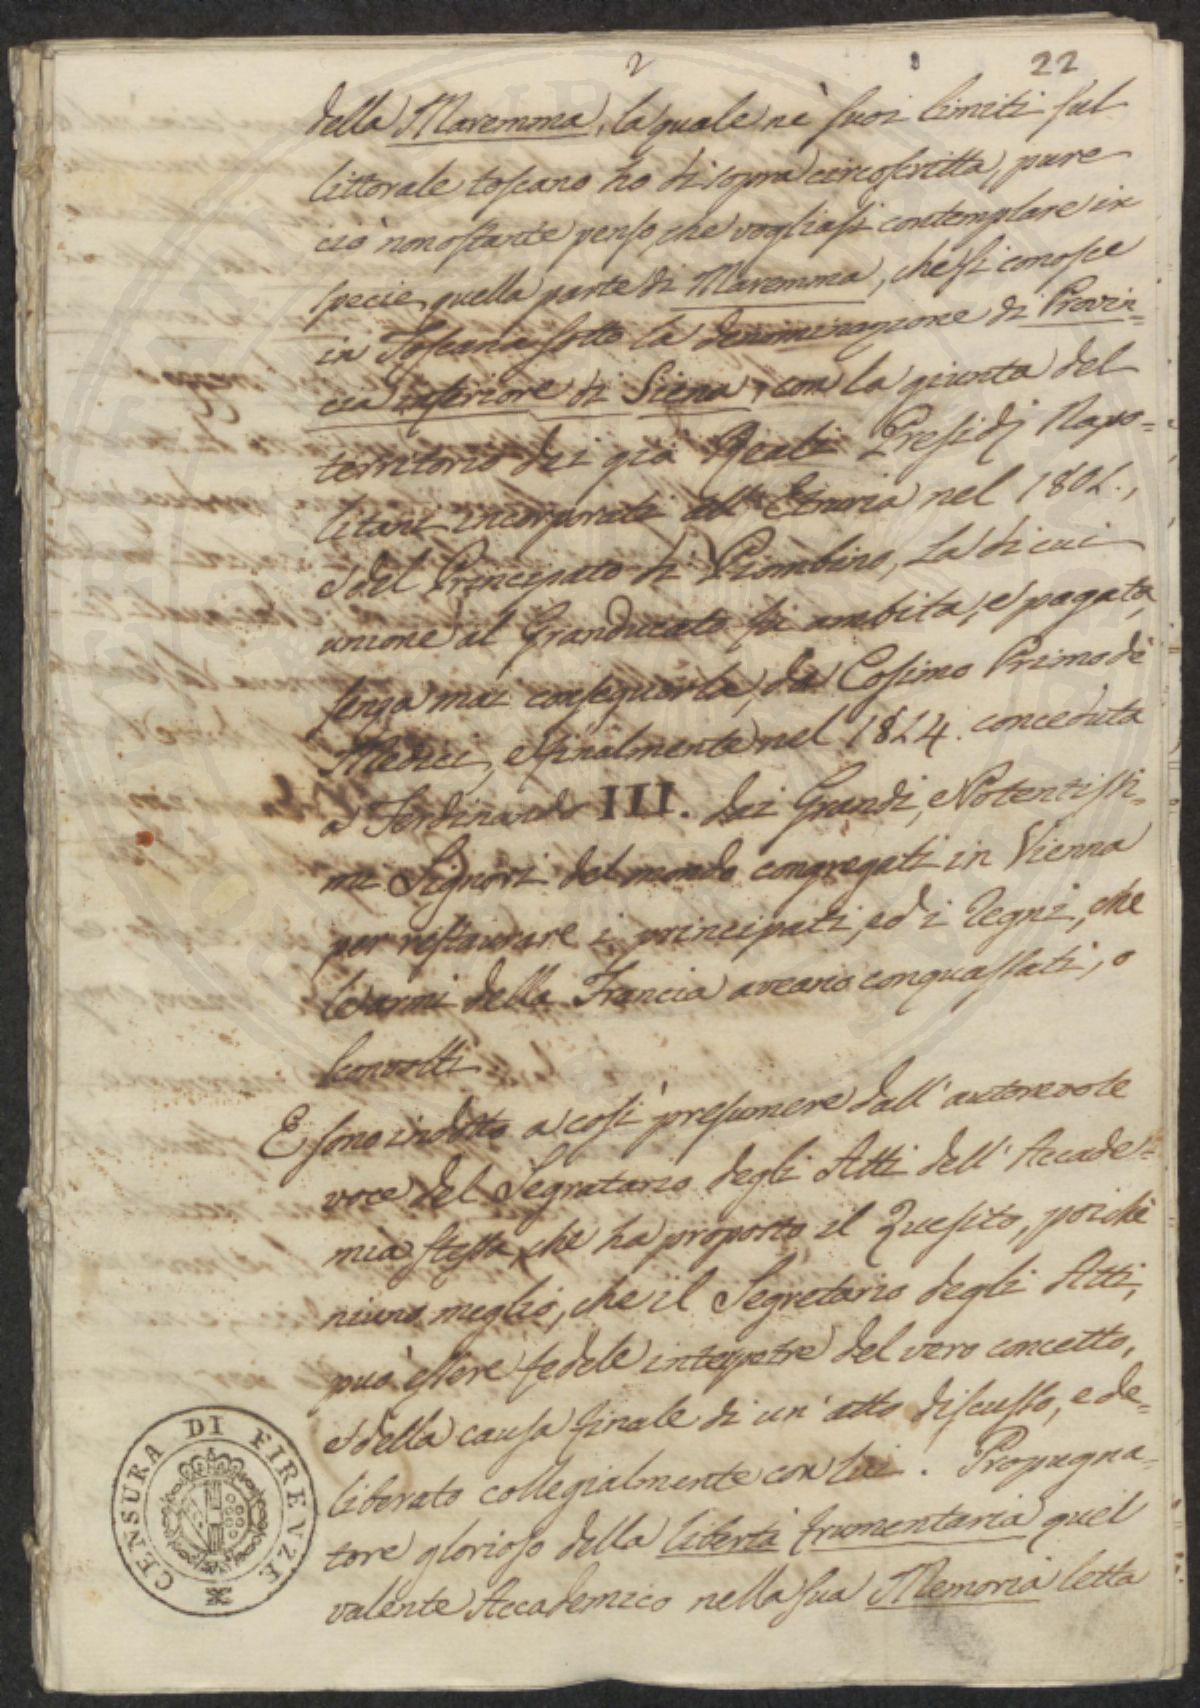 2
22
della Maremma, la quale ne' suoi limiti sul
littorale toscano ho di sopra circoscritta, pure
ciò nonostante penso che vogliasi contemplare in
specie quella parte di Maremma, che si conosce
in Toscana sotto la denominazione di Provin=
cia inferiore di Siena, con la giunta del
territorio dei già Reali Presidj Napo=
litani incorporati all'Etruria nel 1801.,
e del Principato di Piombino, la di cui
unione al Granducato fu ambita, e pagata,
senza mai conseguirla, da Cosimo Primo de'
Medici, e finalmente nel 1814. conceduta
a Ferdinando III. dai Grandi, e Potentissi=
mi Signori del mondo congregati in Vienna
per restaurare i principati, ed i Regni, che
le armi della Francia aveano conquassati, o
sconvolti.
E sono indotto a così presumere dall'autorevole
voce del Segratario degli Atti dell'Accade=
mia stessa, che ha proposto il Quesito, poichè
niuno meglio, che il Segretario degli Atti,
può essere fedele interpetre del vero concetto,
e della causa finale di un'atto discusso, e de=
liberato collegialmente con lui. Propugna=
tore glorioso della libertà frumentaria quel
valente Accademico nella sua Memoria letta
CENSURA DI FIRENZE